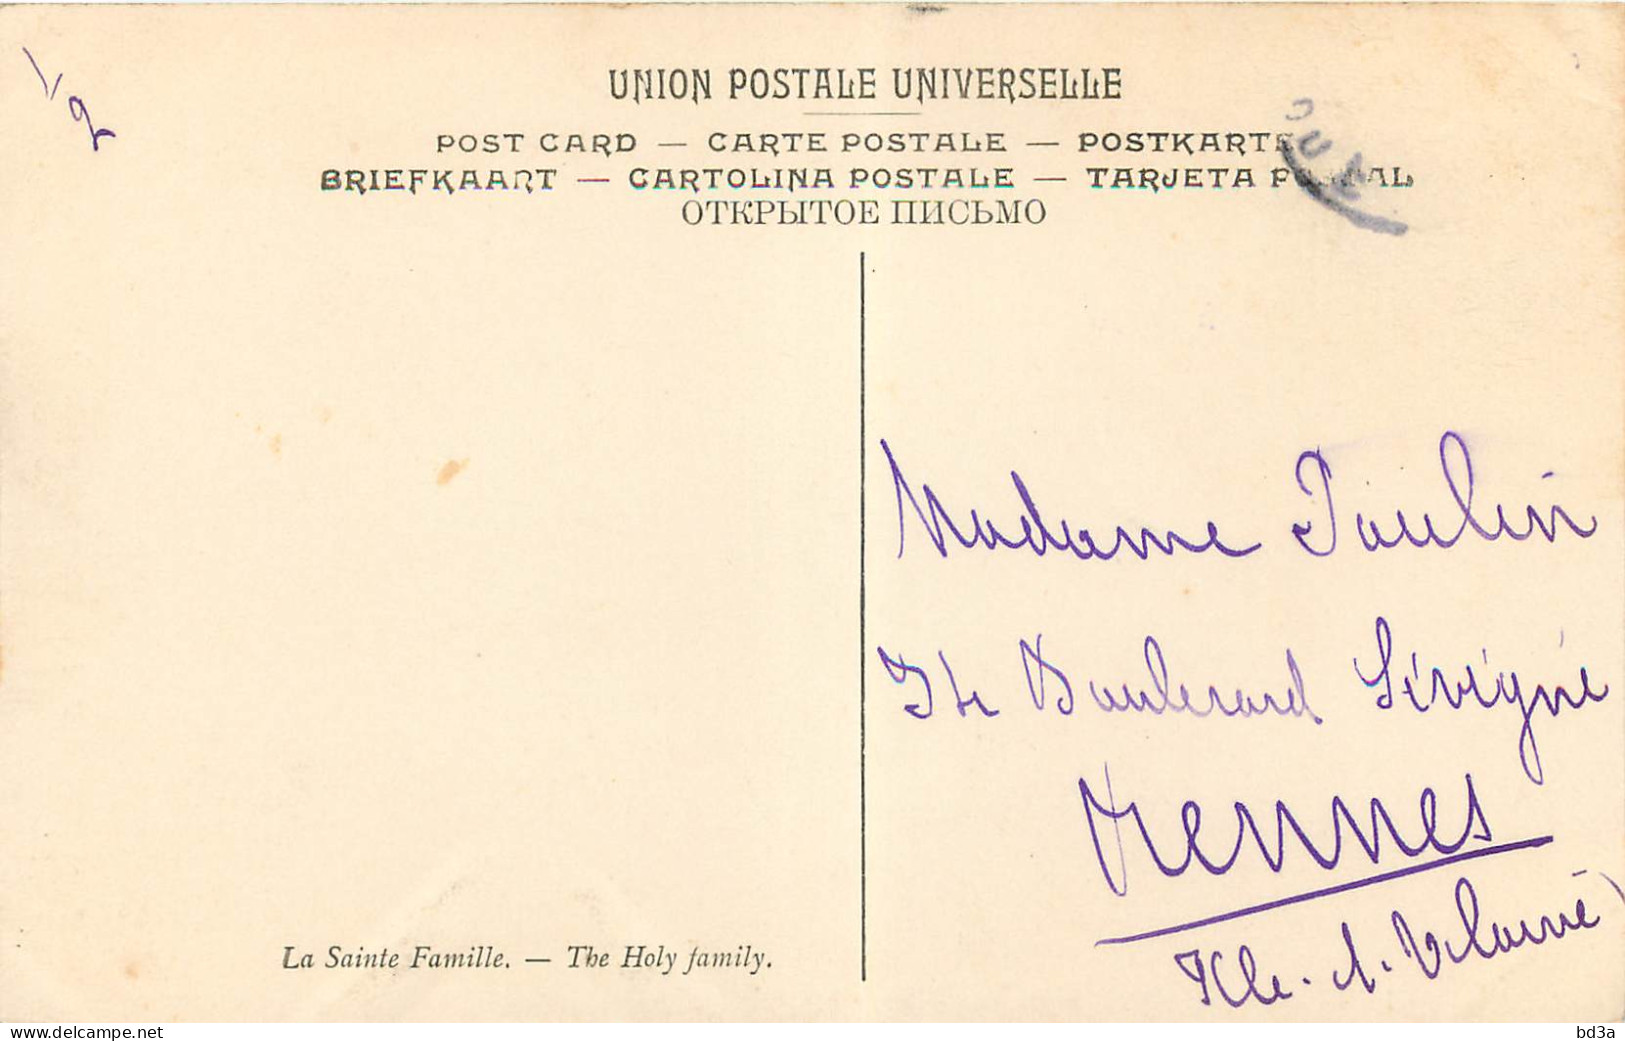 UNION POSTALE UNIVERSELLE
POST CARD — CARTE POSTALE — POSTKARTE
BRIEFKAART — CARTOLINA POSTALE — TARJETA POSTAL
ОТКРЫТОЕ ПИСЬМО
Madame Paulin
34 Boulevard Sévigné
Rennes
Ille-&-Vilaine
La Sainte Famille. — The Holy family.
www.delcampe.net
bd3a